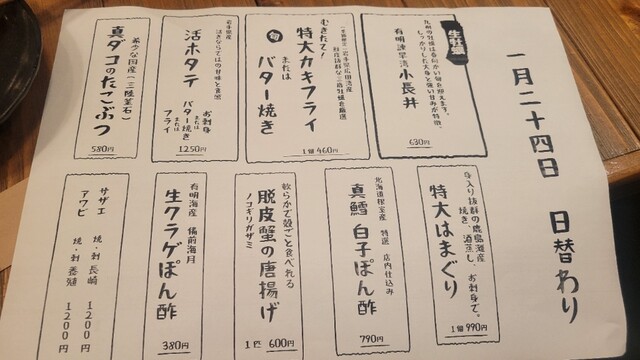 一月二十四日　日替わり
生牡蠣
九州の牡蠣は春何かい旬を迎えます。
しっかりした大身と強い甘みが特徴。
有明諫早湾 小長井
630円
むきたて!
特大カキフライ
または
旬 バター焼き
1個 460円
岩手県産
活きならではの甘味と食感
活ホタテ
お刺身
バター焼き
または
フライ
1250円
希少な国産(三陸釜石)
真ダコのたこぶつ
580円
身入り抜群の鹿島灘産
焼き、酒蒸し、お刺身で。
特大はまぐり
1個 990円
北海道根室産 特選 店内仕込み
真鱈 白子ぽん酢
790円
軟らかで殻ごと食べれる
ノコギリガザミ
脱皮蟹の唐揚げ
1匹 600円
有明海産 備前海月
生クラゲぽん酢
380円
サザエ 焼・刺 長崎 1200円
アワビ 焼・刺 養殖 1200円